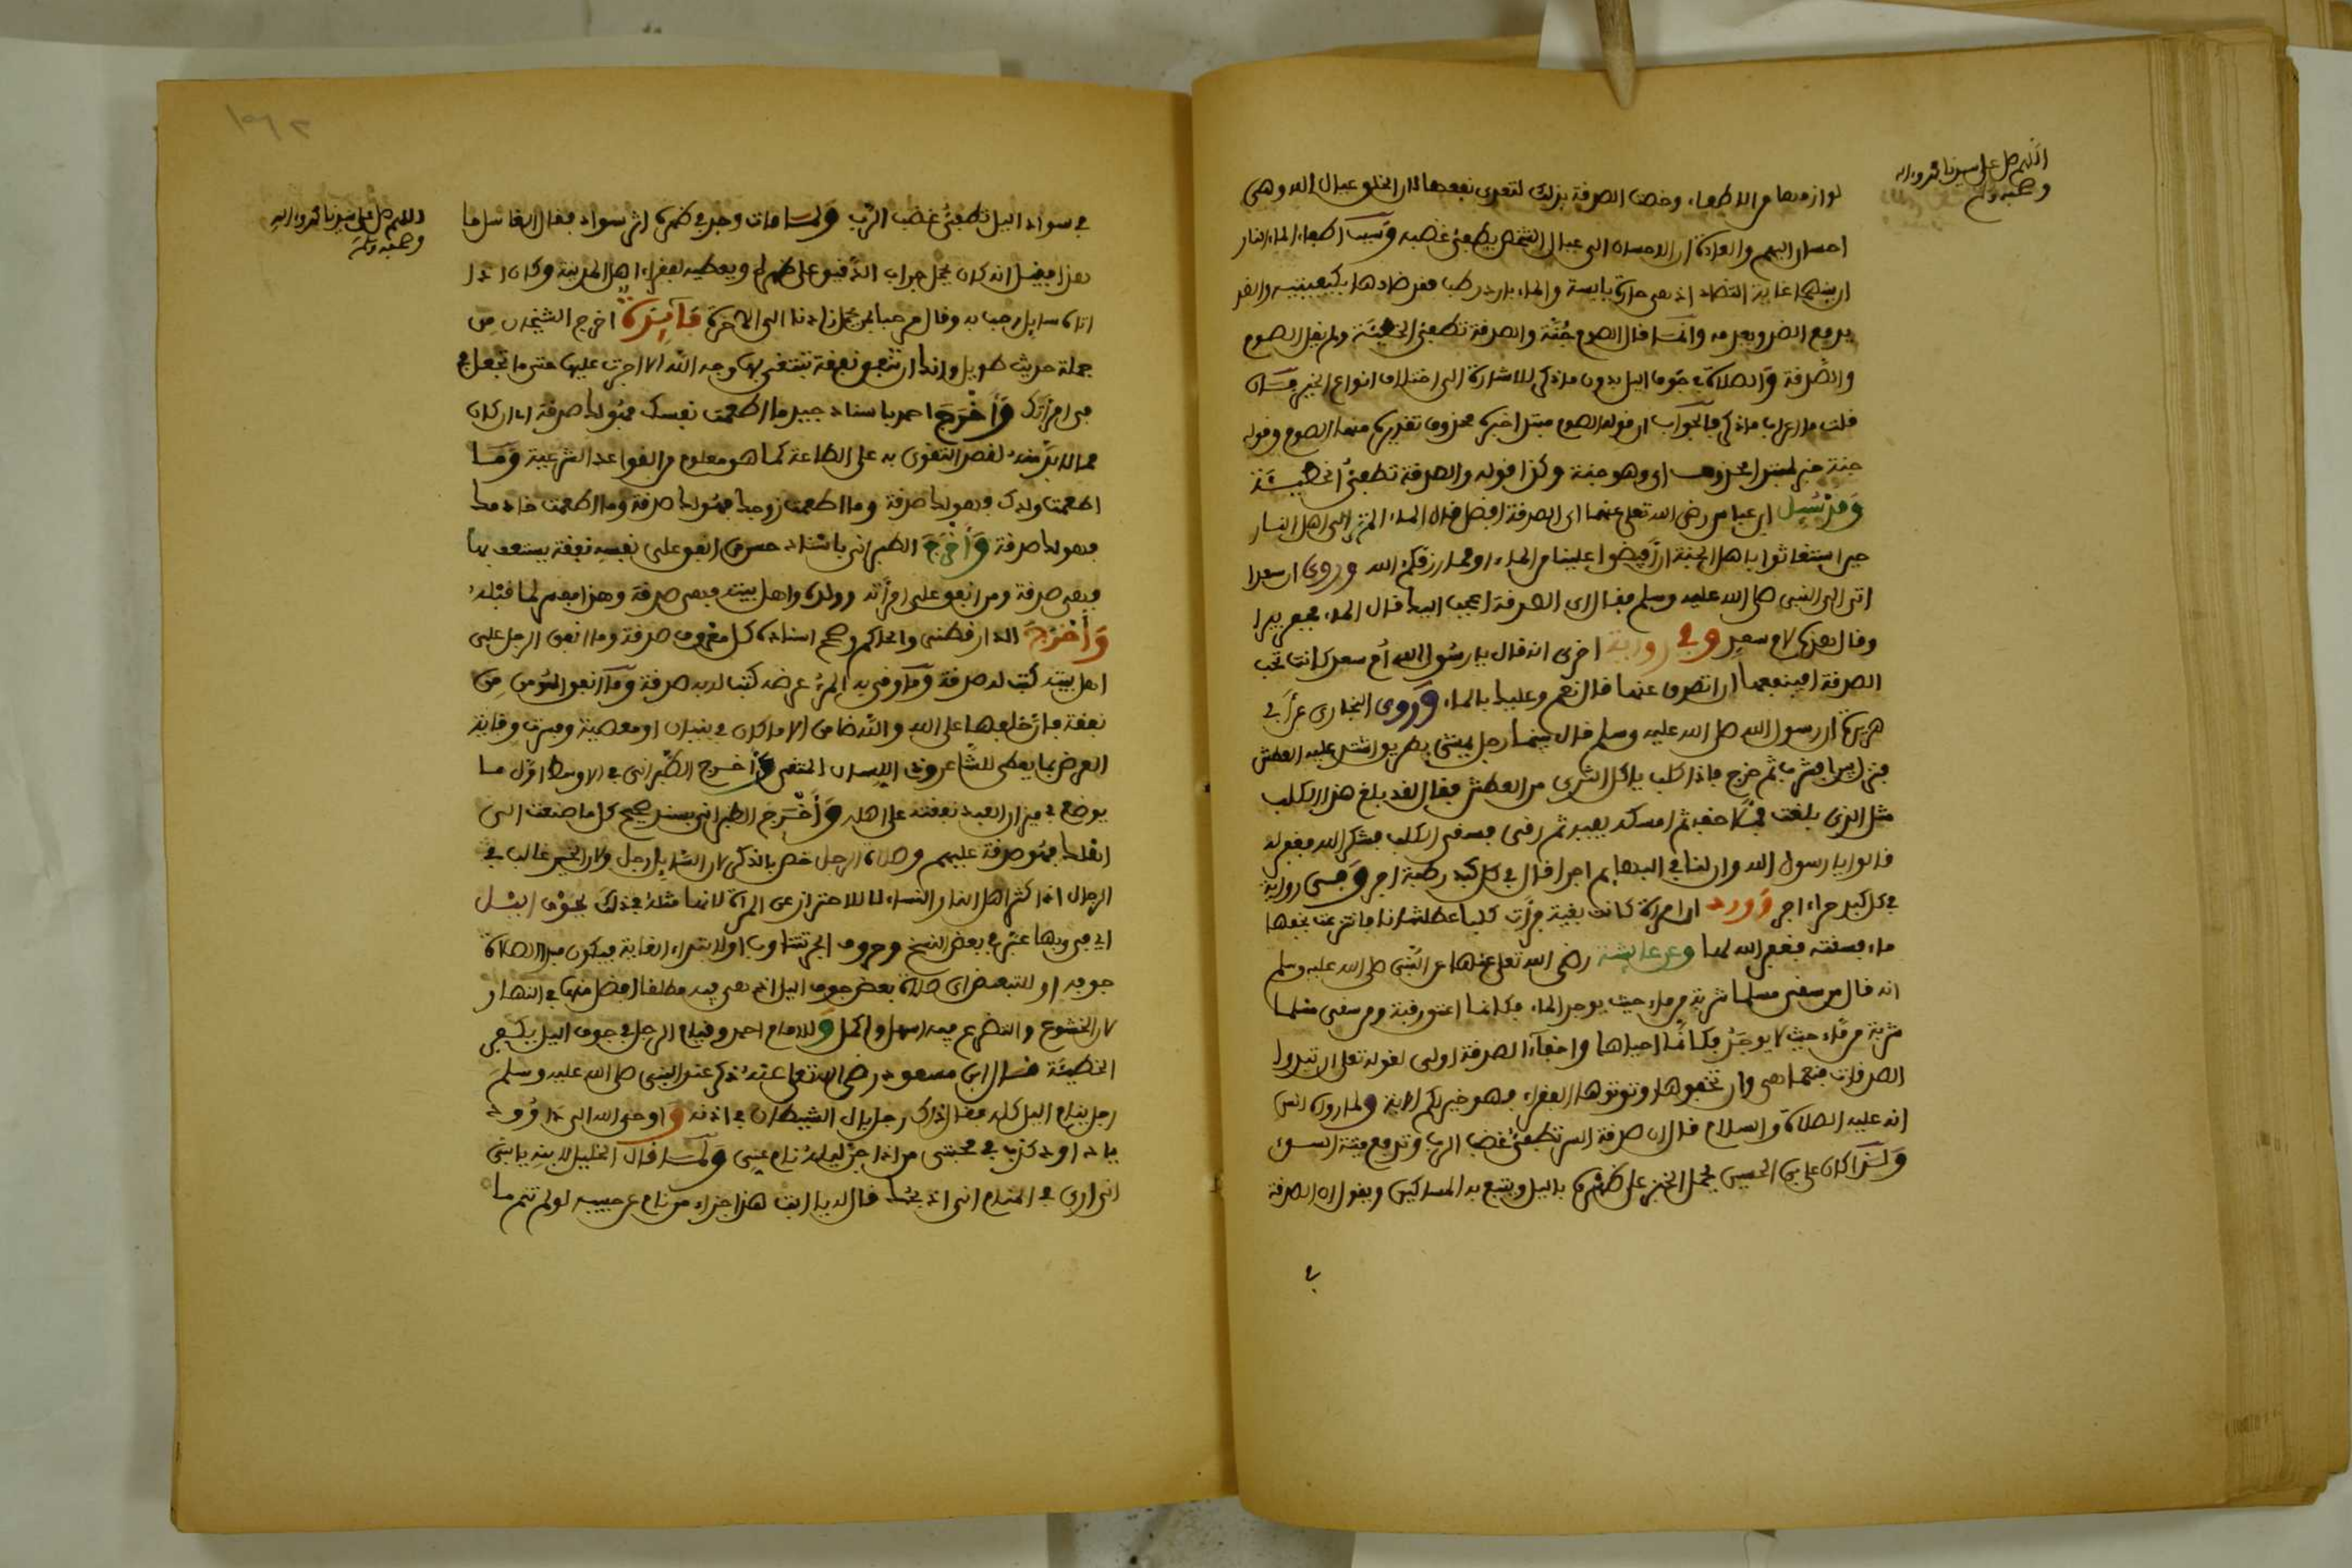 اللهم صل على سيدنا محمد وءاله
وصحبه وسلم
لوازمها من الاطعاء، وخصت الصدقة بذلك لتعدى نفعها لان الخلق عيال الله وهي
احسان اليهم والعادة ان الاحسان الى عيال الشخص يطفئ غضبه وسبب اطفاء الماء النار
ان بينهما غاية التضاد اذ هي حارة يابسة والماء بارد رطب فقد ضادها بكيفيتيه والضد
يدفع الضد ويعدمه وانما قال الصوم جُنّة والصدقة تطفئ الخطيئة ولم يقل الصوم
والصدقة والصلاة في جوف اليل بدون ما ذكر للاشارة الى اختلاف انواع الخير فان
قلت ما اعراب ما ذكر فالجواب ان قوله الصوم مبتدا خبره محذوف تقديره منها الصوم وقوله
جنة خبر لمبتدا محذوف اى وهو جنة وكذا قوله والصدقة تطفئ الخطيئة
وقد سُيِل ابن عباس رضى الله تعلى عنهما اى الصدقة افضل قال الماء الم تر الى اهل النار
حين استغاثوا باهل الجنة ان افيضوا علينا من الماء او مما رزقكم الله وروى ان سعدا
اتى الى النبى صلى الله عليه وسلم فقال اى الصدقة اعجب اليك قال الماء فحفر بيرا
وقال هذه لام سعد وفي رواية اخرى انه قال يا رسول الله أم سعد كانت تحب
الصدقة افينفعها ان اتصدق عنها قال نعم وعليك بالماء وروى البخارى عن أبي
هريرة ان رسول الله صلى الله عليه وسلم قال بينما رجل يمشى بطريق اشتد عليه العطش
فنزل بيرا فشرب ثم خرج فاذا كلب ياكل الثرى من العطش فقال لقد بلغ هذا الكلب
مثل الذى بلغت فملأ خفه ثم امسكه بفيه ثم رقى فسقى الكلب فشكر الله فغفر له
قالوا يا رسول الله وان لنا في البهايم اجرا قال في كل كبد رطبة اجر وفي رواية
في كل كبد حراء اجر وورد ان امرأة كانت بغية فرأت كلبا عطشانا فانتزعت بخفها
ماء فسقته فغفر الله لها وعن عايشة رضى الله تعلى عنها عن النبى صلى الله عليه وسلم
انه قال من سقى مسلما شربة من ماء حيث يوجد الماء فكانما اعتق رقبة ومن سقى مسلما
شربة من ماء حيث لا يوجد فكانما احياها واخفاء الصدقة اولى لقوله تعلى ان تبدوا
الصدقات فنعما هى وان تخفوها وتوتوها الفقراء فهو خير لكم الاية ولما روى انس
انه عليه الصلاة والسلام قال ان صدقة السر تطفئ غضب الرب وتدفع ميتة السوء
ولذا كان على بن الحسين يحمل الخبز على ظهره باليل ويتبع به المساكين ويقول ان الصدقة
في
اللهم صل على سيدنا محمد وءاله
وصحبه وسلم
في سواد اليل تطفئ غضب الرب ولما مات وجد في ظهره اثر سواد فقال الغاسل ما
هذا فقيل انه كان يحمل جراب الدقيق على ظهره ويعطيه لفقراء اهل المدينة وكان اذا
اتاه سايل رحب به وقال مرحبا بمن يحمل زادنا الى الاخرة فايدة اخرج الشيخان من
جملة حديث طويل وانك لن تنفق نفقة تبتغى بها وجه الله الا اجرت عليها حتى ما تجعل في
في امرأتك وأخرج احمد باسناد جيد ما اطعمت نفسك فهو لك صدقة اى ان كان
مما لا بد منه لقصد التقوى به على الطاعة كما هو معلوم من القواعد الشرعية وما
اطعمت ولدك فهو لك صدقة وما اطعمت زوجك فهو لك صدقة وما اطعمت خادمك
فهو لك صدقة وأخرج الطبرانى باسناد حسن من انفق على نفسه نفقة يستعف بها
فهى صدقة ومن انفق على امرأته وولده واهل بيته فهى صدقة وهذا مفسر لما قبله
وأخرج الدارقطنى والحاكم وصحح اسناده كل معروف صدقة وما انفق الرجل على
اهل بيته كتب له صدقة وما وقى به المرء عرضه كتب له به صدقة وما انفق المؤمن من
نفقة فان خلفها على الله والله ضامن الا ما كان في بنيان او معصية وفسرت وقاية
العرض بما يعطى للشاعر وذى اللسان المتقى وأخرج الطبرانى في الاوسط اول ما
يوضع في ميزان العبد نفقته على اهله وأخرج الطبرانى بسند صحيح كل ما صنعت الى
اهلك فهو صدقة عليهم وصلاة الرجل خص بالذكر لان السايل رجل ولان الخير غالب في
الرجال اذ اكثر اهل النار النساء لا للاحتراز عن المرأة لانها مثله في ذلك جوف اليل
اى في وبها عبر في بعض النسخ وحروف الجر تتناوب او لابتداء الغاية فيكون مبدا الصلاة
جوفه او للتبعيض اى صلاة بعض جوف اليل اذ هى فيه مطلقا افضل منها في النهار
لان الخشوع والتضرع فيه اسهل واكمل وللامام احمد وقيام الرجل في جوف اليل يكفر
الخطيئة قال ابن مسعود رضى الله تعلى عنه ذكر عند النبى صلى الله عليه وسلم
رجل ينام اليل كله فقال ذاك رجل بال الشيطان في اذنه واوحى الله الى داوود
يا داود كذب في محبتى من اذا جن ليله نام عنى ولما قال الخليل لابنه يا بنى
انى ارى في المنام انى اذبحك قال له يا ابت هذا جزاء من نام عن حبيبه لو لم تنم ما